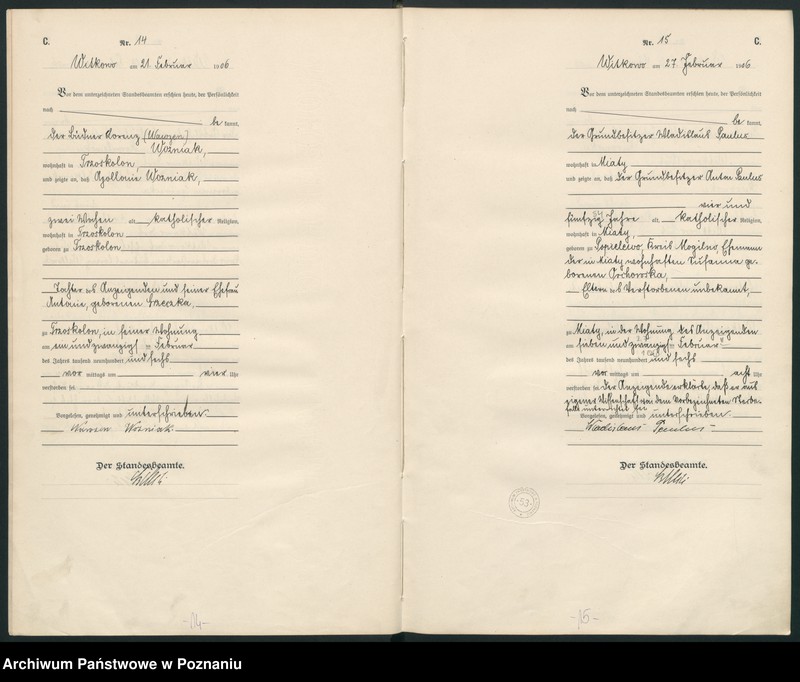 C.
Nr. 14
Witkowo am 21. Februar 1906
Vor dem unterzeichneten Standesbeamten erschien heute, der Persönlichkeit
nach
be kannt,
der Büdner Lorenz (Wawrzen)
Woźniak,
wohnhaft in Trzoskolon,
und zeigte an, daß Apollonie Woźniak,
zwei Wochen alt, katholischer Religion,
wohnhaft in Trzoskolon
geboren zu Trzoskolon
Tochter des Anzeigenden und seiner Ehefrau
Antonie, geborenen
zu Trzoskolon, in seiner Wohnung
am ein und zwanzigsten Februar
des Jahres tausend neunhundert und sechs
vor mittags um vier Uhr
verstorben sei.
Vorgelesen, genehmigt und unterschrieben
Wawrzen Woźniak
Der Standesbeamte.
-14-
Nr. 15
C.
Witkowo am 27. Februar 1906
Vor dem unterzeichneten Standesbeamten erschien heute, der Persönlichkeit
nach
be kannt,
der Grundbesitzer Wladislaus Paulus
wohnhaft in Miaty
und zeigte an, daß der Grundbesitzer Anton Paulus
vier und
fünfzig 54 Jahre alt, katholischer Religion,
wohnhaft in Miaty,
geboren zu Popielewo, Kreis Mogilno, Ehemann
der in Miaty wohnhaften Susanna ge-
borenen
Eltern des Verstorbenen unbekannt,
zu Miaty, in der Wohnung des Anzeigenden
am sieben und zwanzigsten Februar
des Jahres tausend neunhundert und sechs
vor mittags um acht Uhr
verstorben sei. Der Anzeigende erklärte, daß er aus
eigener Wissenschaft von dem vorbezeichneten Sterbe-
falle unterrichtet sei
Vorgelesen, genehmigt und unterschrieben
Wladislaus Paulus
Der Standesbeamte.
53
-15-
Archiwum Państwowe w Poznaniu